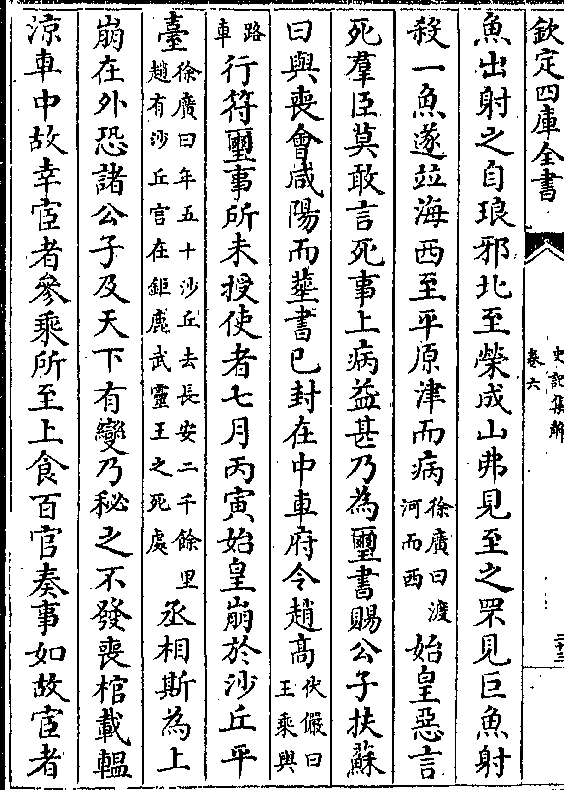 欽定四庫全書
史記集解
卷六
魚出射之自琅邪北至榮成山弗見至之罘見巨魚射
殺一魚遂竝海西至平原津而病徐廣曰渡河而西始皇惡言
死羣臣莫敢言死事上病益甚乃為璽書賜公子扶蘇
曰與喪會咸陽而葬書已封在中車府令趙高伏儼曰王乘與
路車行符璽事所未授使者七月丙寅始皇崩於沙丘平
臺徐廣曰年五十沙丘去長安二千餘里趙有沙丘宫在鉅鹿武靈王之死處丞相斯為上
崩在外恐諸公子及天下有變乃秘之不發喪棺載轀
涼車中故幸宦者參乘所至上食百官奏事如故宦者